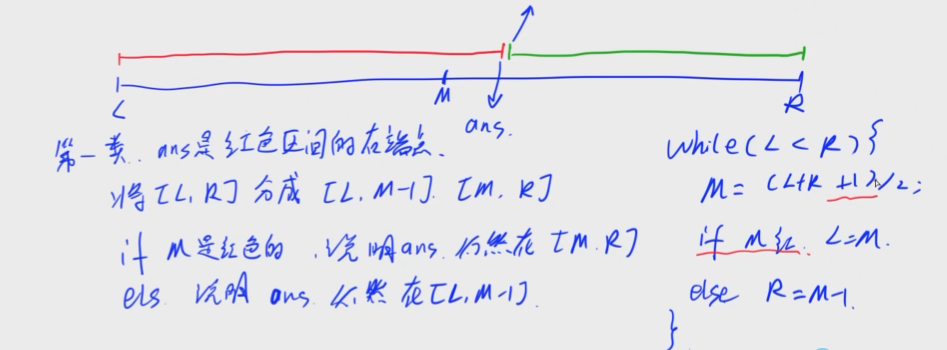 L
M
ans.
R
第一类. ans是红色区间的右端点.
将[L, R] 分成 [L, M-1]. [M, R]
if M是红色的 ,说明ans 必然在 [M, R]
els 说明 ans 必然在[L, M-1].
while(L < R) {
M = (L+R +1)/2;
if M红. L=M.
else R=M-1.
}